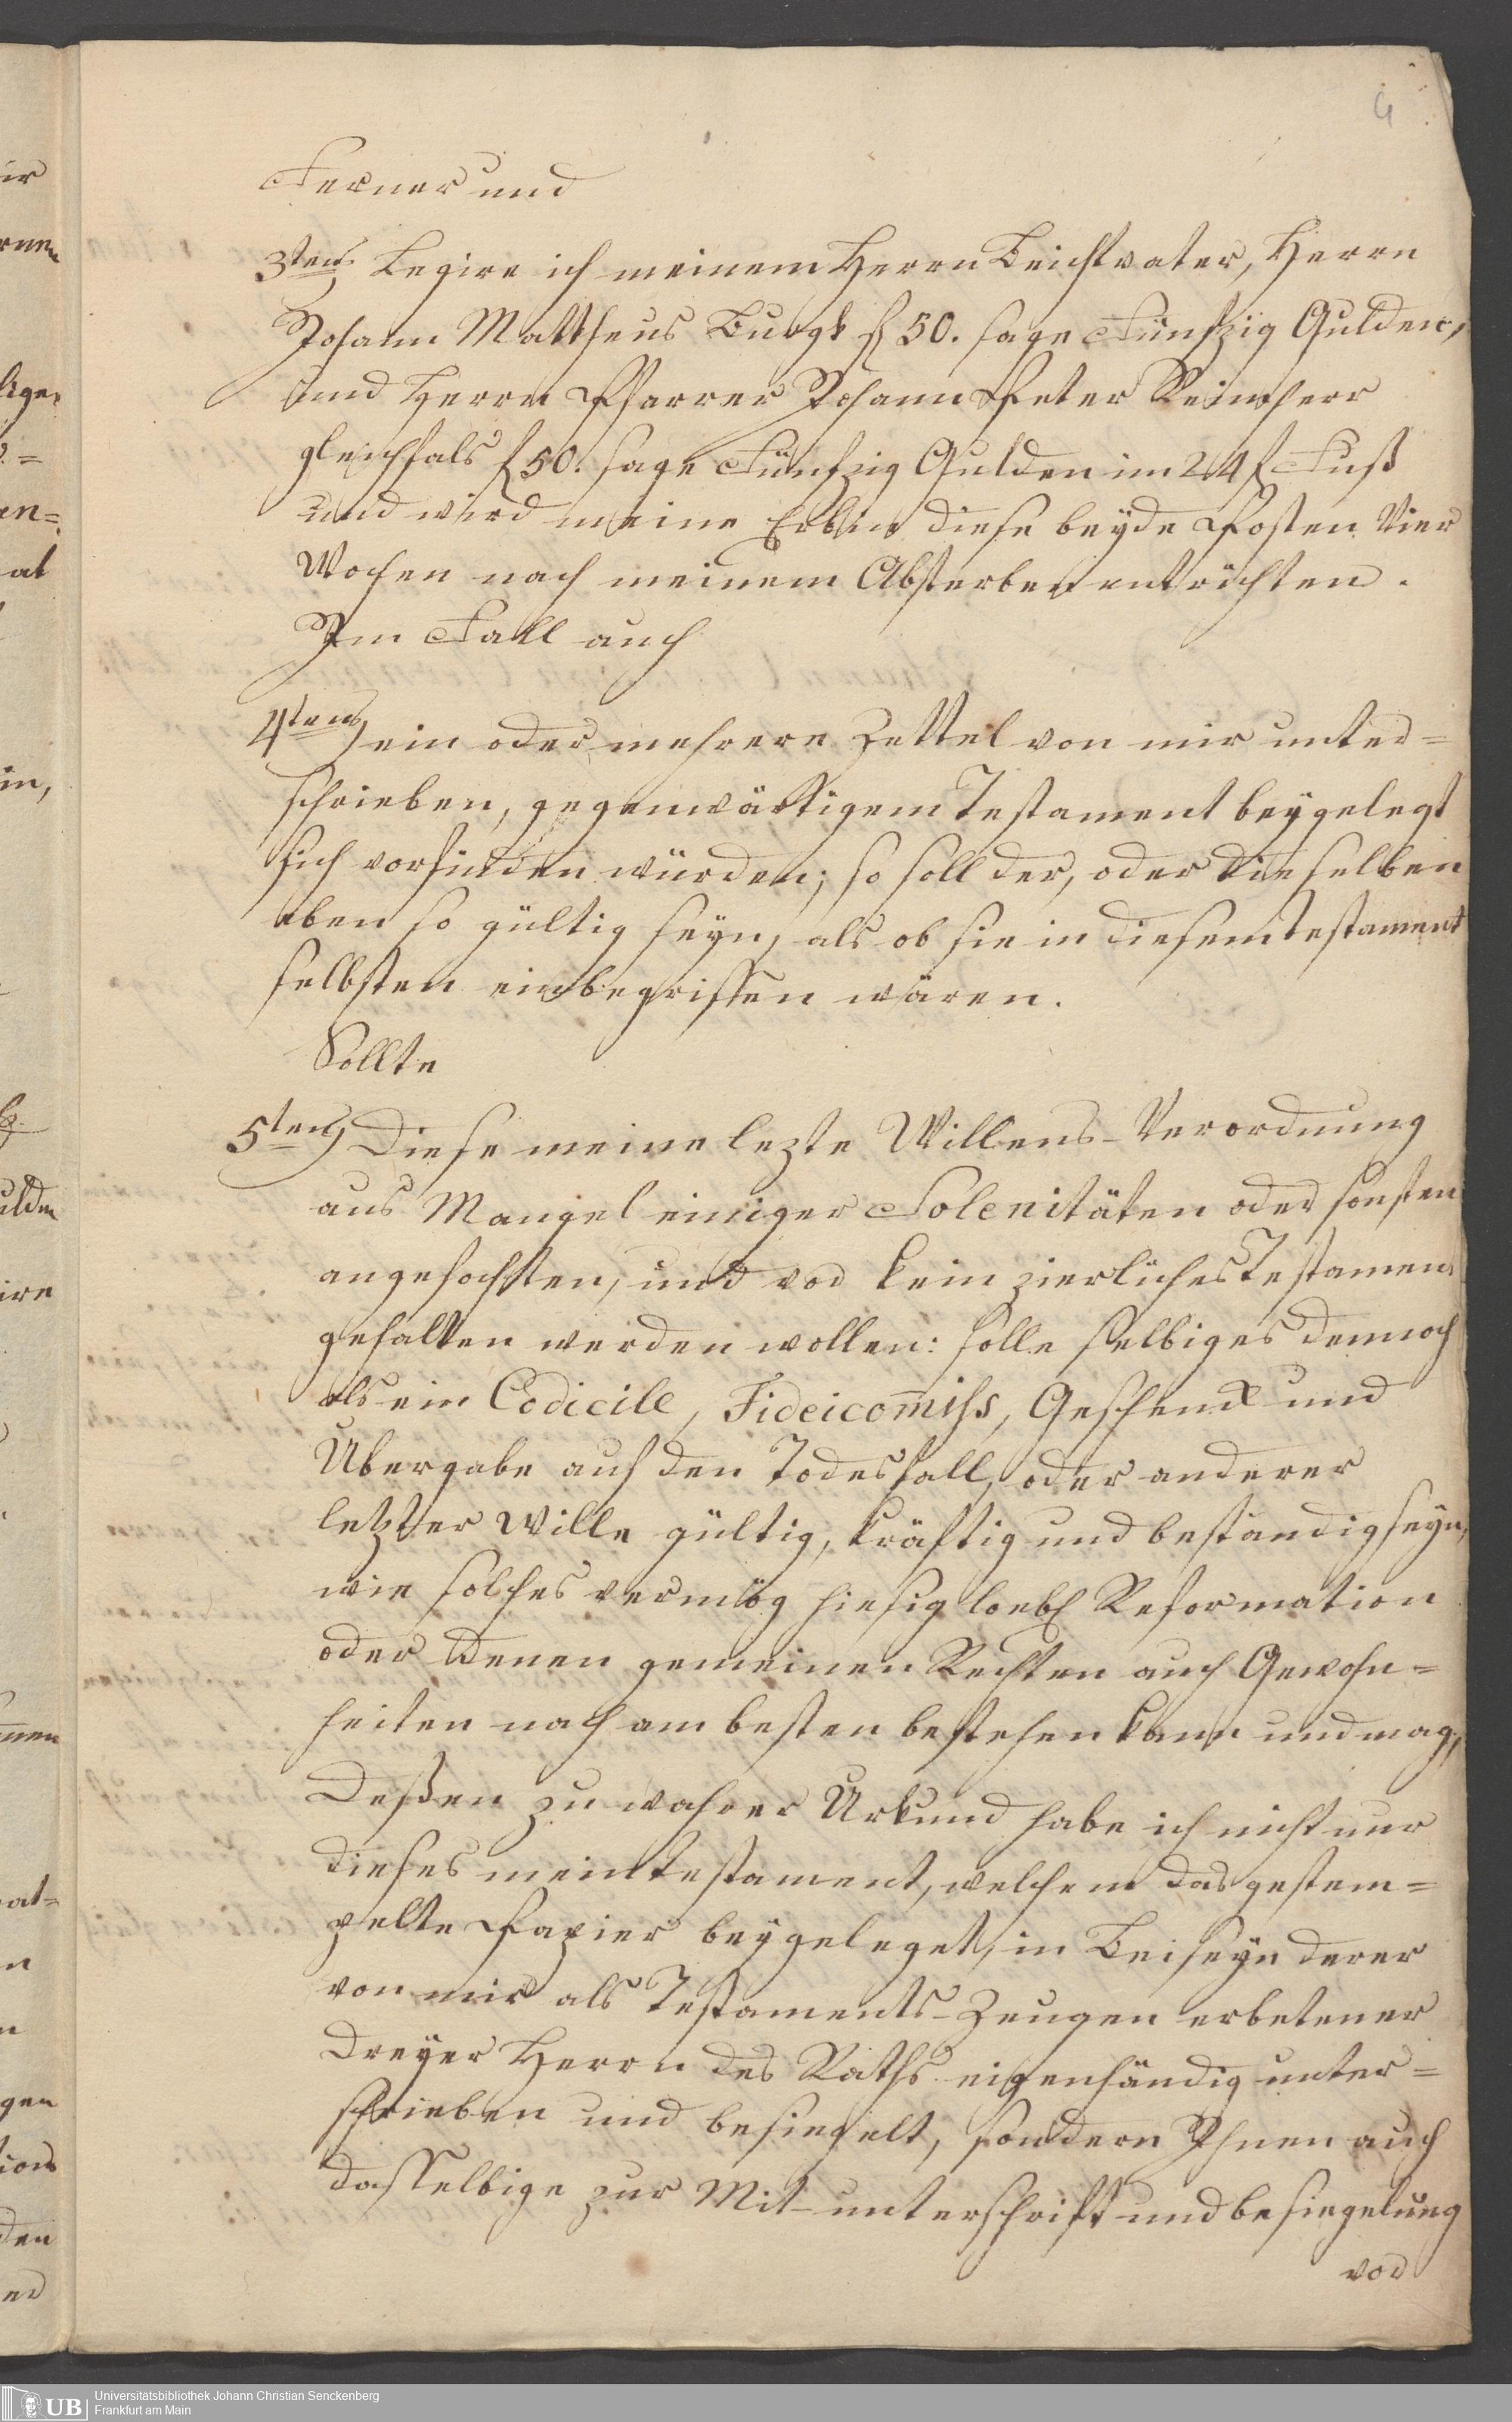 4
Ferner und
3tens Legire ich meinem Herrn Beichtvater, Herrn
Johann Mattheus Burgk f 50. sage Fünfzig Gulden,
und Herrn Pfarrer Johann Peter Reimherr
gleichfals f 50. sage Fünfzig Gulden im 24 f Fuß
und wird meine Erbin diese beÿde Posten Vier
Wochen nach meinem Absterben entrichten.
Im Fall auch
4tens ein oder mehrere Zettel von mir unter=
schrieben, gegenwärtigem Testament beÿgelegt
sich vorfinden würden; so soll der, oder dieselben
eben so gültig seÿn, als ob sie in diesem testament
selbsten einbegriffen wären.
Sollte
5tens Diese meine lezte Willens-Verordnung
aus Mangel einiger Solenitäten oder sonsten
angefochten, und vor kein zierliches Testament
gehalten werden wollen: solle selbiges dennoch
als ein Codicile, Fideicom̅iss, Geschenck und
Ubergabe auf den Todesfall, oder anderer
letzter Wille gültig, kräftig und beständig seÿn,
wie solches vermög hiesig loebl Reformation
oder denen gemeinen Rechten auch Gewohn=
heiten nach am besten bestehen kann und mag,
Deßen zu wahrer Urkund habe ich nicht nur
dieses mein testament, welchem das gestem=
pelte Papier beÿgeleget, in Beiseÿn derer
von mir als Testaments-Zeugen erbetener
Dreÿer Herrn des Raths eigenhändig unter=
schrieben und besiegelt, sondern Ihnen auch
dasselbige zur Mit-unterschrift und besiegelung
vor
UB
Universitätsbibliothek Johann Christian Senckenberg
Frankfurt am Main